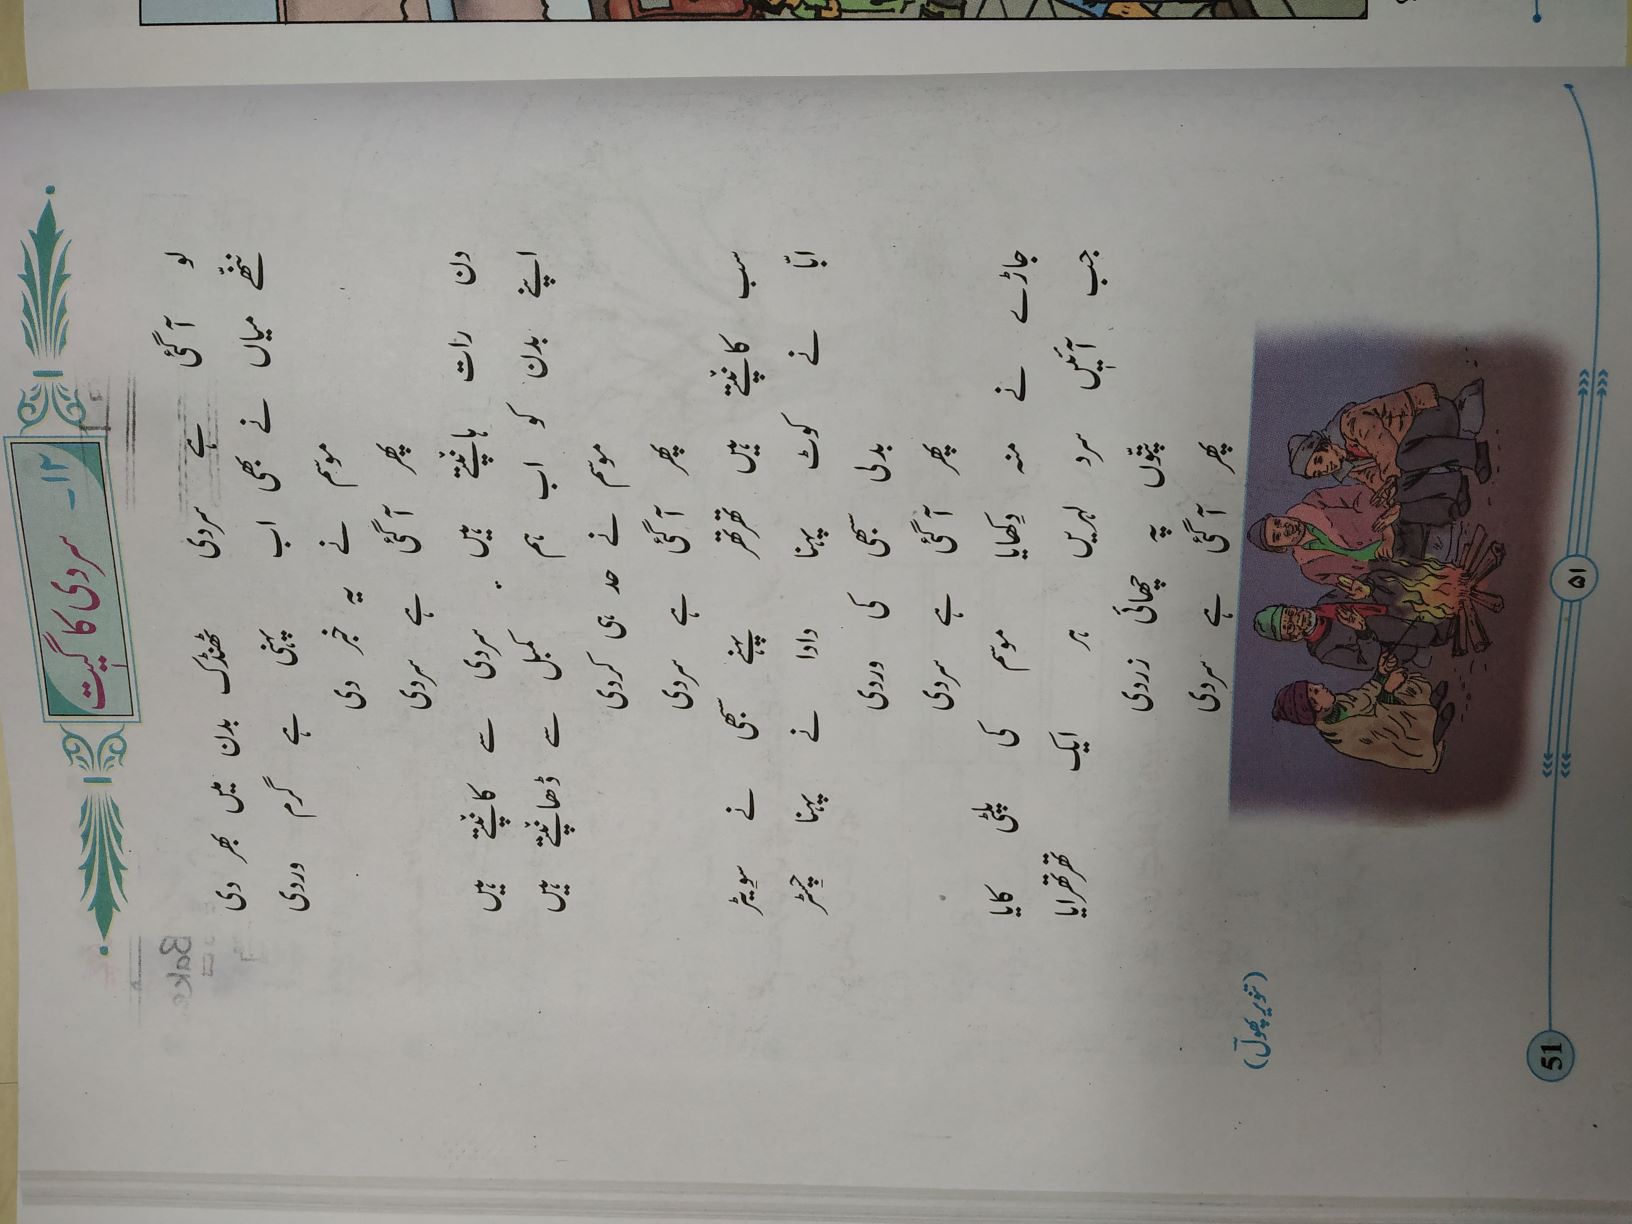 ۱۲۔ سردی کا گیت
لو آ گئی ہے سردی ٹھنڈک بدن میں بھر دی
ننّھے میاں نے بھی اب پہنی ہے گرم وردی
موسم نے یہ خبر دی
پھر آ گئی ہے سردی
دن رات ہانپتے ہیں سردی سے کانپتے ہیں
اپنے بدن کو اب ہم کمبل سے ڈھانپتے ہیں
موسم نے حد ہی کردی
پھر آ گئی ہے سردی
سب کانپتے ہیں تھرتھر پہنے سبھی نے سویٹر
ابّا نے کوٹ پہنا دادا نے پہنا چِسٹر
بدلی سبھی کی وردی
پھر آ گئی ہے سردی
جاڑے نے منہ دِکھایا موسم کی پلٹی کایا
جب آئیں سرد لہریں ہر ایک تھرتھرایا
پتّوں پہ چھائی زردی
پھر آ گئی ہے سردی
(تنویر پھولؔ)
51
۵۱